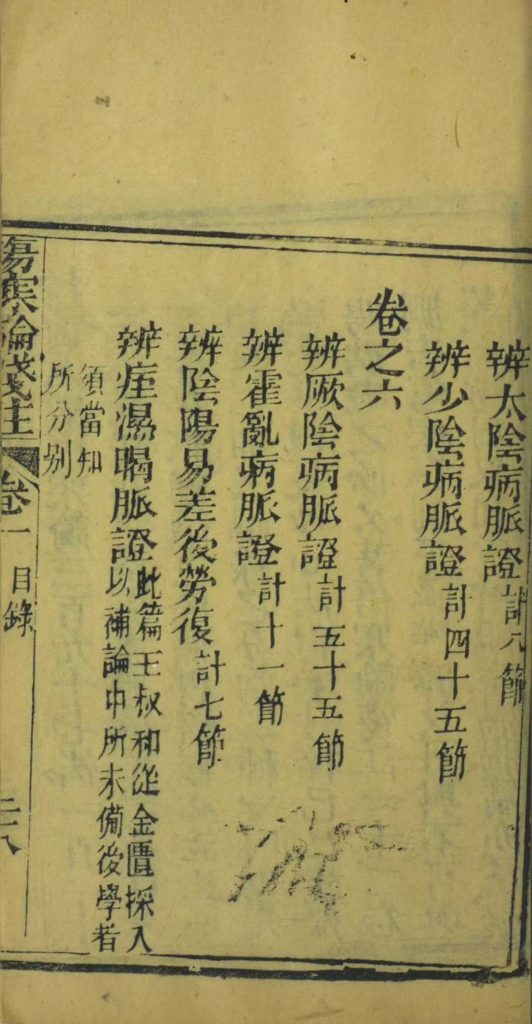 辨太陰病脈證計八節
辨少陰病脈證計四十五節
卷之六
辨厥陰病脈證計五十五節
辨霍亂病脈證計十一節
辨陰陽易差後勞復計七節
辨痓濕暍脈證此篇王叔和從金匱採入
以補論中所未備後學者
須當知
所分別
傷寒論淺註 卷一 目錄